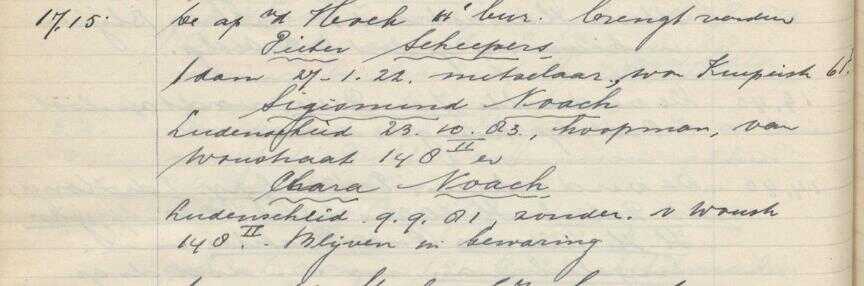 17.15. De ap vd Hoek 4e bur. brengt vorden
Pieter Scheepers
Adam 27-1.22. metselaar, wo 61.
Sigismund Noach
Ludenscheid 23.10.83, koopman, van
Woustraat 148 II en
Clara Noach
Ludenscheid 9.9.81, zonder. v Woustr
148 II. Blijven in bewaring